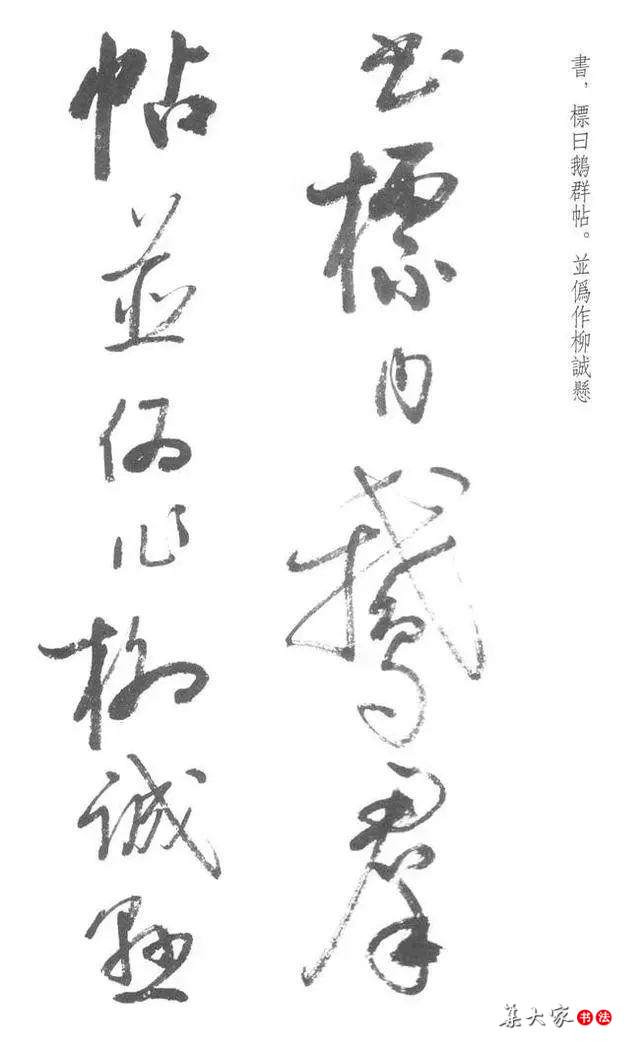 書，標曰鵝群帖。並偽作柳誠懸
书標曰鵝羣
帖並偽作柳誠懸
集大家书法